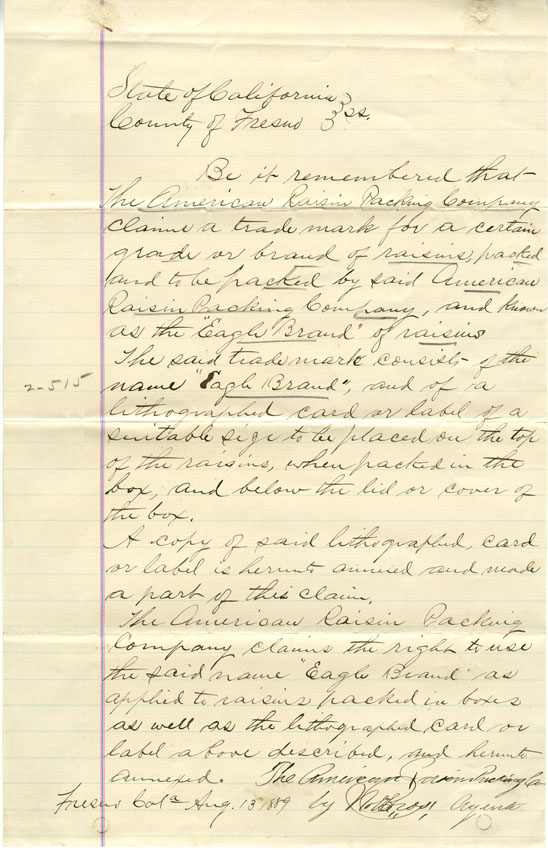 State of California } ss.
County of Fresno }
Be it remembered that
the American Raisin Packing Company
claims a trade mark for a certain
grade or brand of raisins, packed
and to be packed by said American
Raisin Packing Company, and known
as the "Eagle Brand" of raisins
The said trade mark consists of the
2-515
name "Eagle Brand", and of a
lithographed card or label of a
suitable size to be placed on the top
of the raisins, when packed in the
box, and below the lid or cover of
the box.
A copy of said lithographed card
or label is herunto annexed and made
a part of this claim.
The American Raisin Packing
Company claims the right to use
the said name "Eagle Brand" as
applied to raisins packed in boxes
as well as the lithographed card or
label above described, and herunto
annexed. The American Raisin Packing Co
Fresno Cala Aug. 13 1889 by Agent